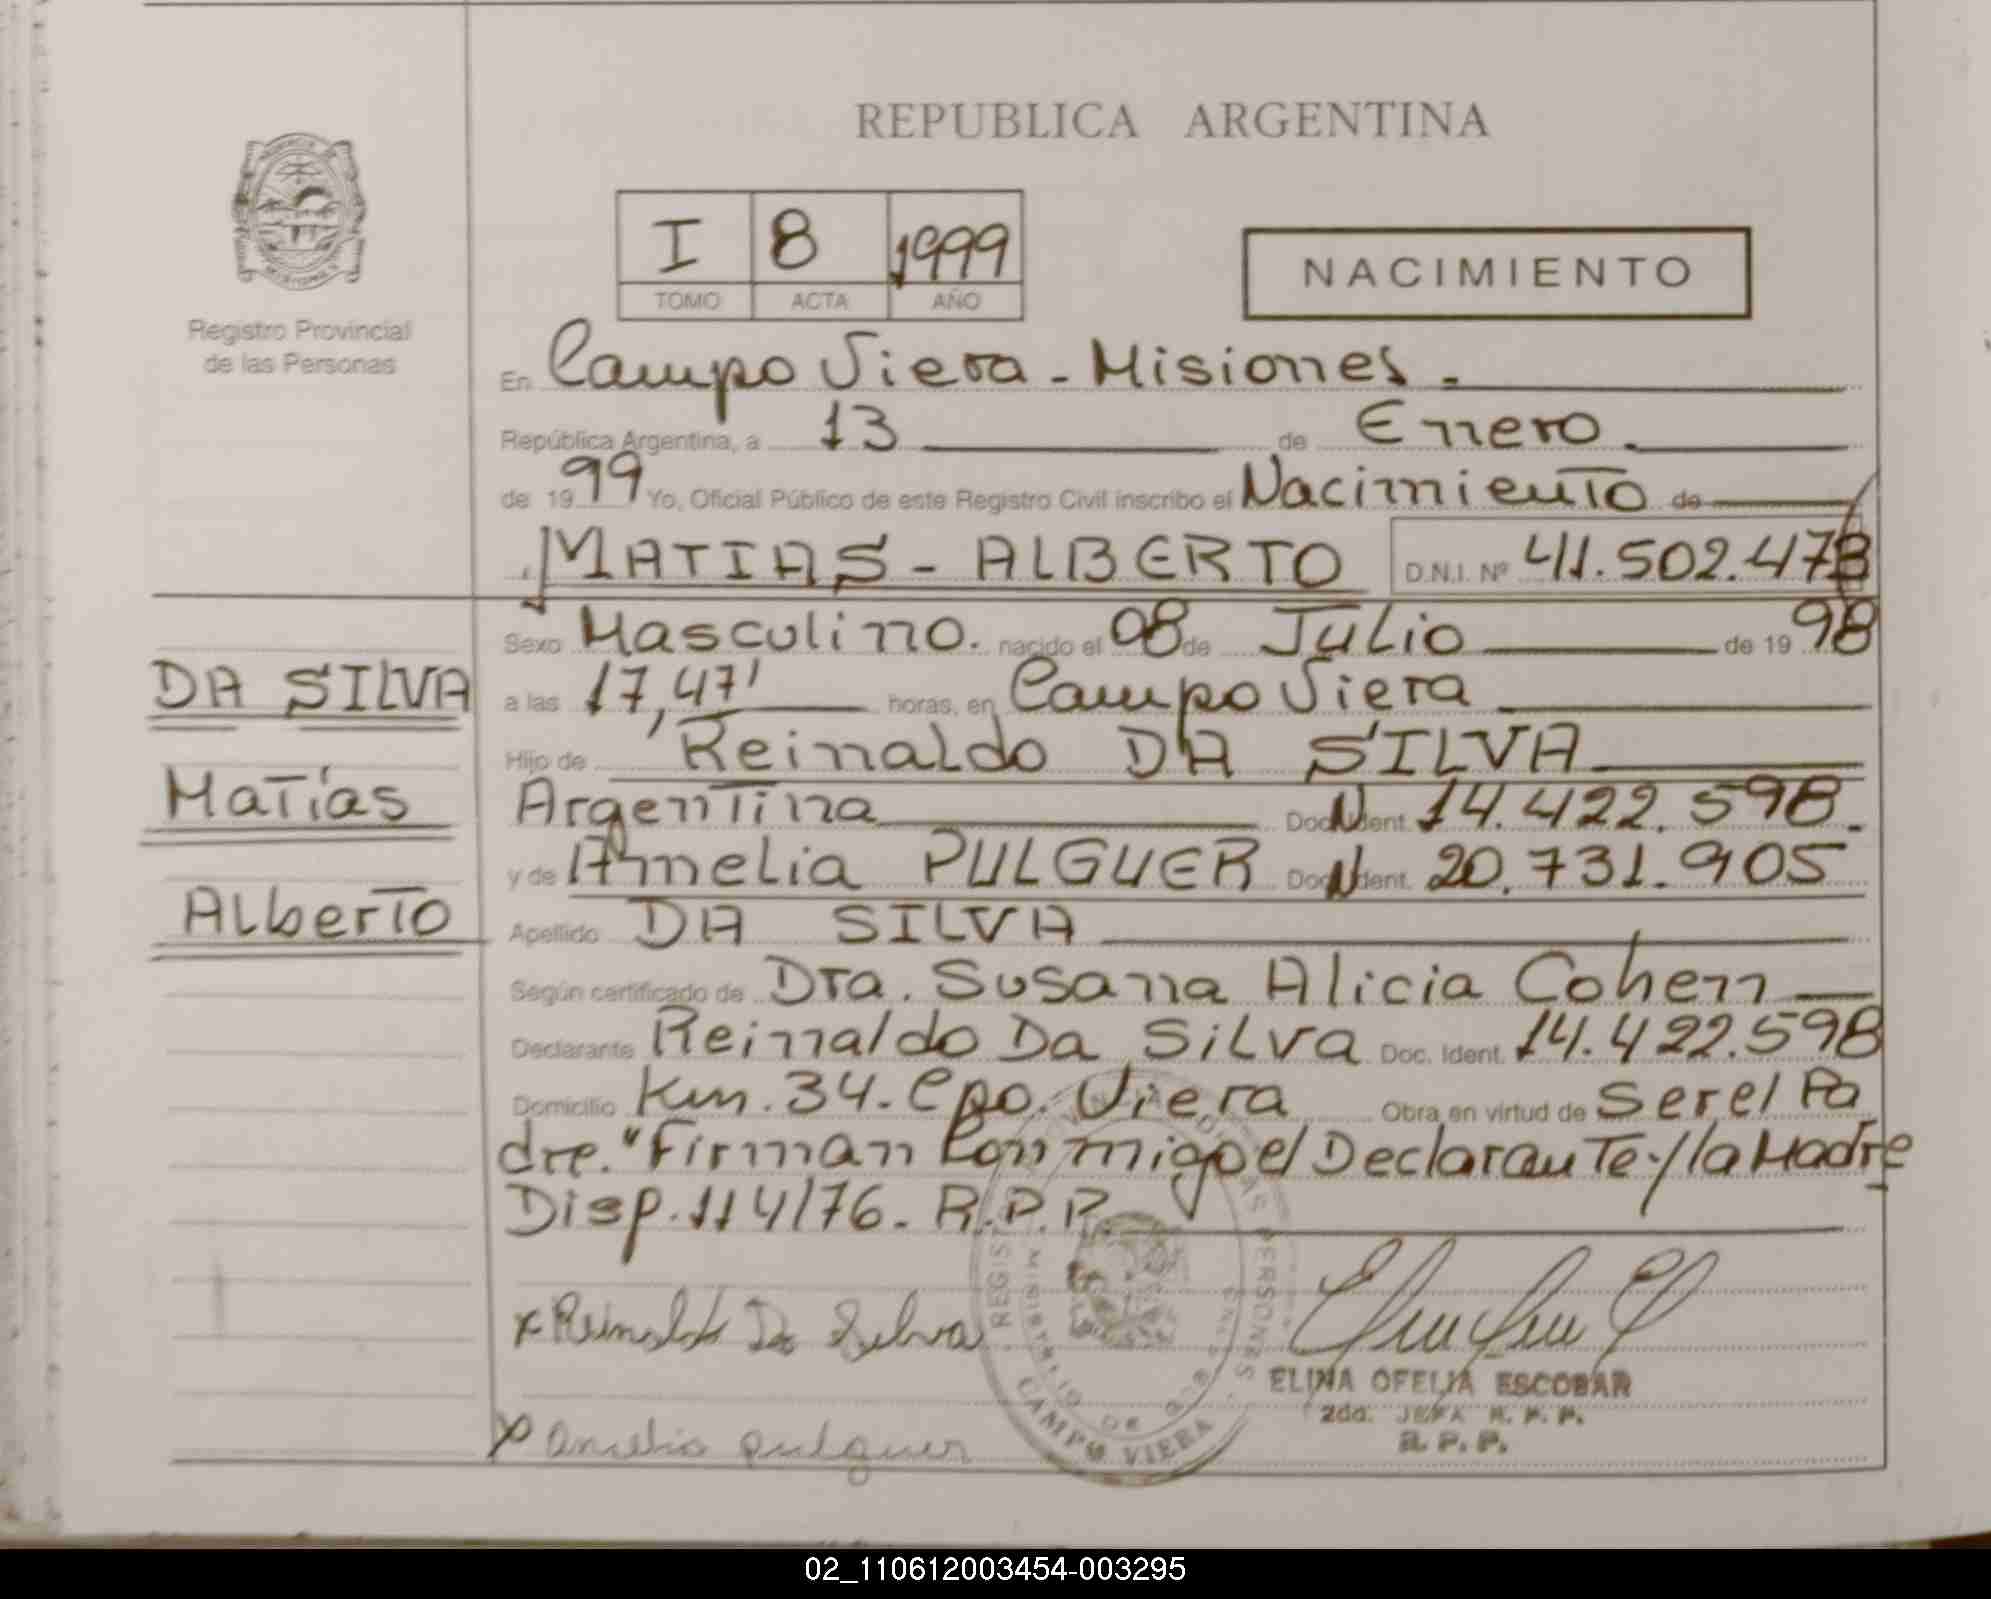 REPUBLICA ARGENTINA
I 8 1999
TOMO ACTA AÑO
NACIMIENTO
Registro Provincial
de las Personas
En Campo Viera - Misiones.
República Argentina, a 13 de Enero
de 1999 Yo, Oficial Público de este Registro Civil inscribo el Nacimiento de
MATIAS - ALBERTO D.N.I. Nº 41.502.478
Sexo Masculino. nacido el 08 de Julio de 1998
DA SILVA
a las 17,47' horas, en Campo Viera
Hijo de Reinaldo DA SILVA
Matías
Argentina Doc. Ident. 14.422.598.
y de Amelia PULGUER Doc. Ident. 20.731.905
Alberto
Apellido DA SILVA
Según certificado de Dra. Susana Alicia Cohen
Declarante Reinaldo Da Silva Doc. Ident. 14.422.598
Domicilio Km. 34. Cpo. Viera Obra en virtud de ser el Pa
dre. "Firman Conmigo el Declarante y la Madre
Disp. 114/76. R.P.P.
x Reinaldo Da Silva
ELINA OFELIA ESCOBAR
2da. JEFA R. P. P.
R. P. P.
x amelia pulguer
CAMPO VIERA
02_110612003454-003295